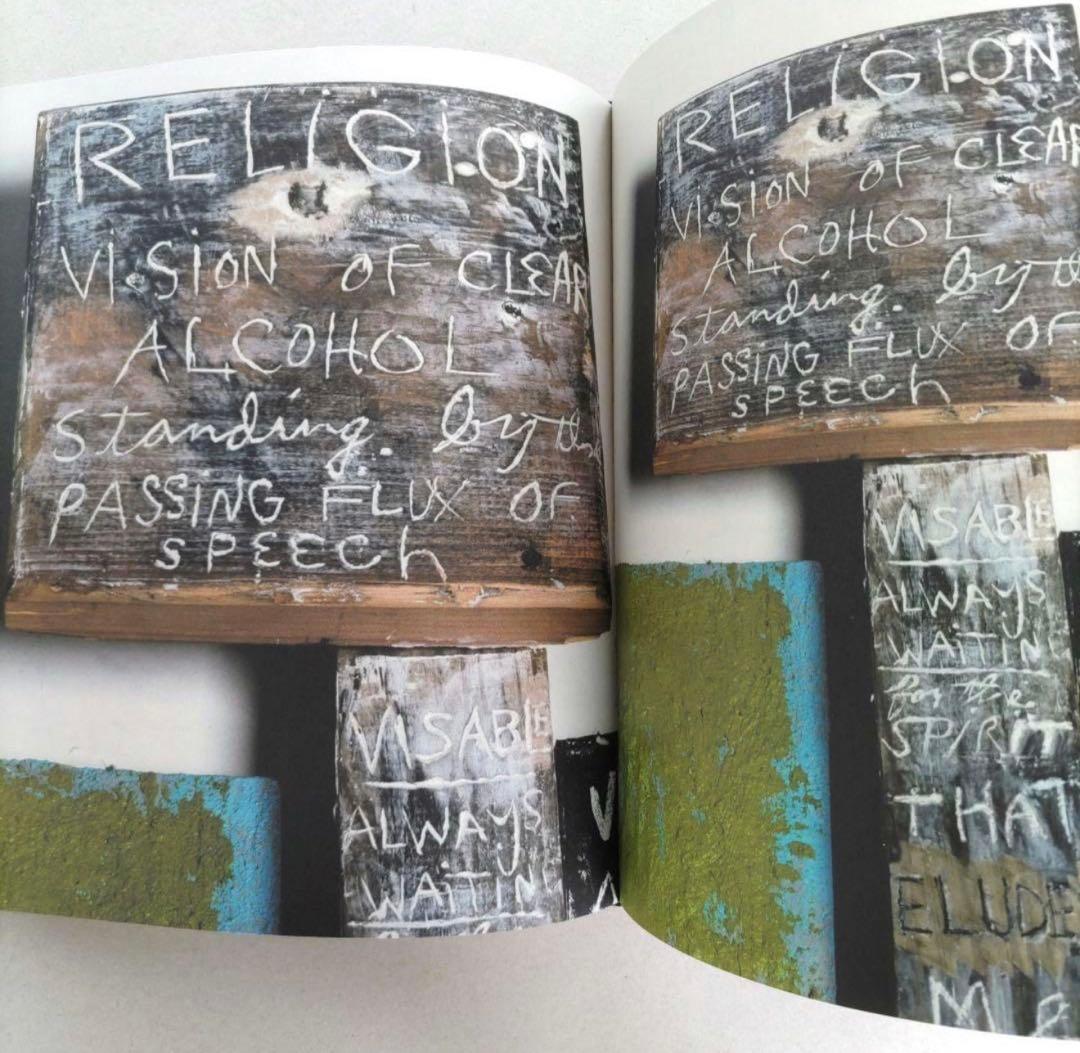 RELIGION
Vi.SiON OF CLEAR
ALCOHOL
standing. by the
PASSING FLUX OF.
SPEECh
VISABLE
ALWAYS
WAITIN
RELIGION
Vi.SiON OF CLEAR
ALCOHOL
standing. by th
PASSING FLUX OF.
SPEECh
VISABLE
ALWAYS
WAITIN
for the
SPIRIT
THAT
ELUDE
Me